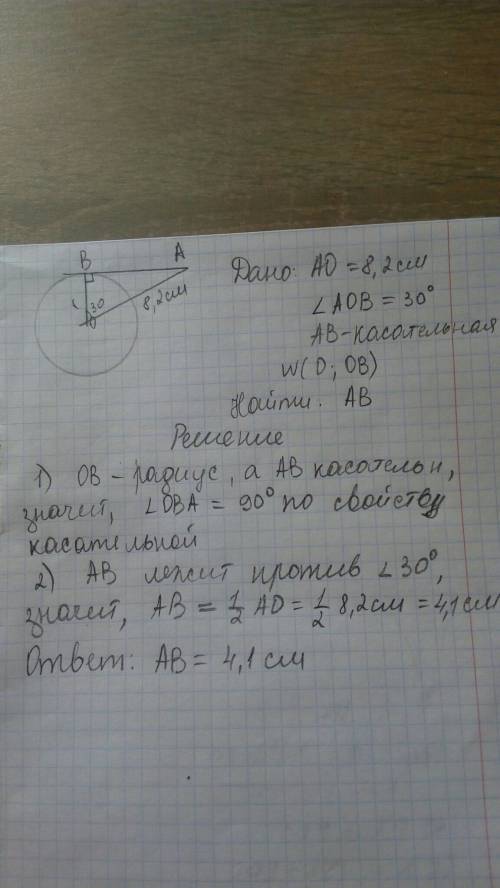 B A
30
8,2см
Дано: АО = 8,2 см
∠AOB = 30°
AB - касательная
W(O; OB)
Найти: AB
Решение
1) OB - радиус, а AB касательн,
значит, ∠OBA = 90° по свойству
касательной
2) AB лежит против ∠30°,
значит, AB = 1/2 AO = 1/2 8,2см = 4,1 см
Ответ: AB = 4,1 см